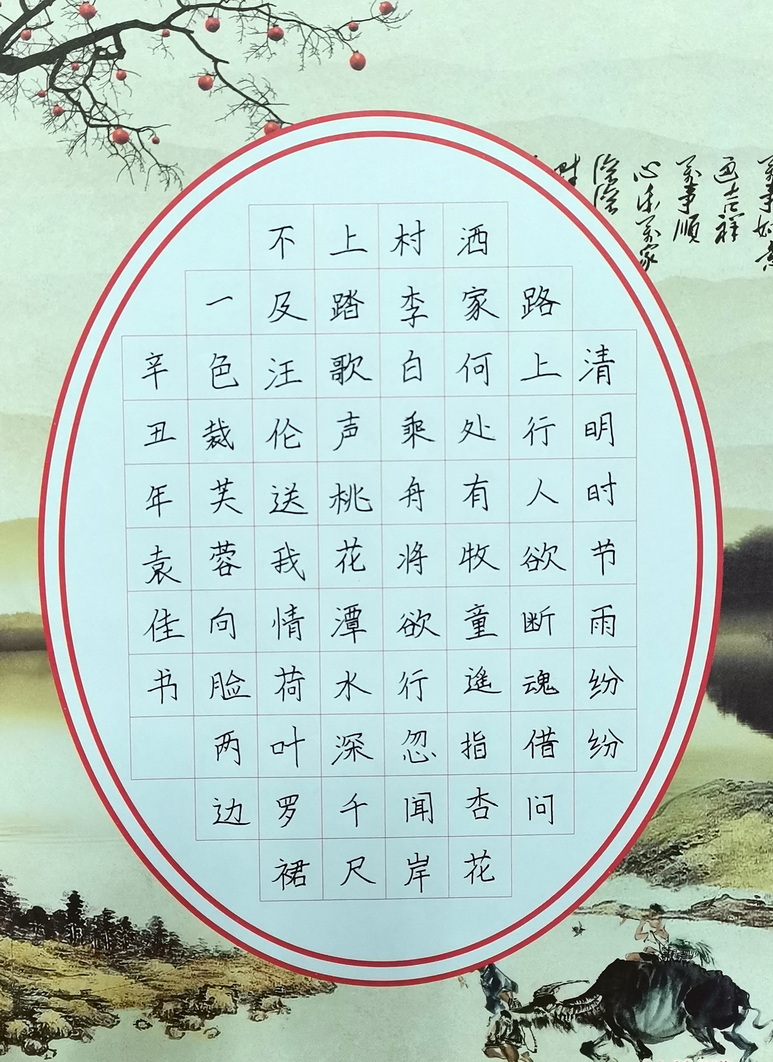 清明时节雨纷纷
路上行人欲断魂借问
洒家何处有牧童遥指杏花
村李白乘舟将欲行忽闻岸
上踏歌声桃花潭水深千尺
不及汪伦送我情荷叶罗裙
一色裁芙蓉向脸两边
辛丑年袁佳书
萬事如意
吉祥
萬事順